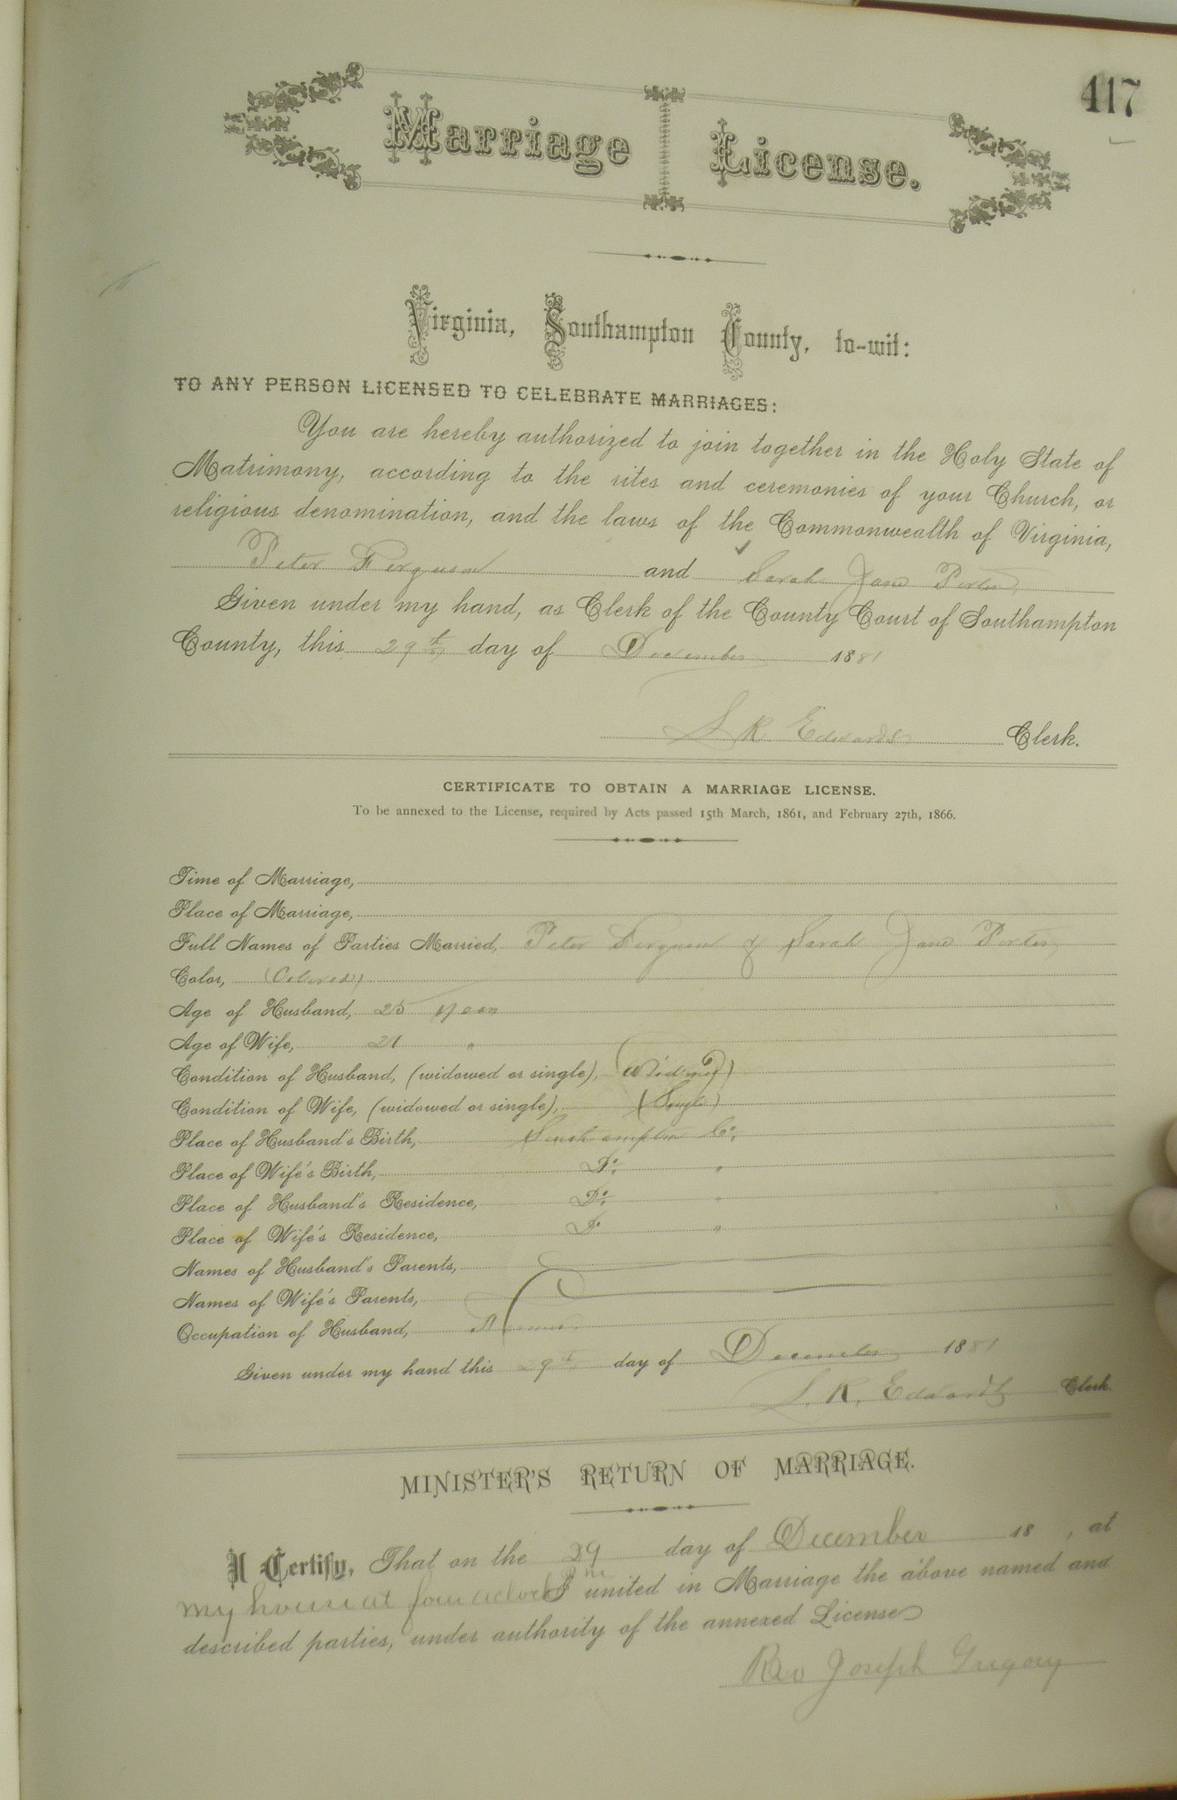 417
Marriage License.
Virginia, Southampton County, to-wit:
TO ANY PERSON LICENSED TO CELEBRATE MARRIAGES:
You are hereby authorized to join together in the Holy State of
Matrimony, according to the rites and ceremonies of your Church, or
religious denomination, and the laws of the Commonwealth of Virginia,
Peter Ferguson and Sarah Jane Porter
Given under my hand, as Clerk of the County Court of Southampton
County, this 29th day of December 1881
L R Edwards Clerk.
CERTIFICATE TO OBTAIN A MARRIAGE LICENSE.
To be annexed to the License, required by Acts passed 15th March, 1861, and February 27th, 1866.
Time of Marriage,
Place of Marriage,
Full Names of Parties Married, Peter Ferguson & Sarah Jane Porter
Color, (Colored)
Age of Husband, 25 years
Age of Wife, 21 "
Condition of Husband, (widowed or single), (Widowed)
Condition of Wife, (widowed or single), (Single)
Place of Husband's Birth, Southampton Co.
Place of Wife's Birth, Do. "
Place of Husband's Residence, Do. "
Place of Wife's Residence, Do "
Names of Husband's Parents,
Names of Wife's Parents,
Occupation of Husband,
Given under my hand this 29th day of December 1881
L. R. Edwards Clerk.
MINISTER'S RETURN OF MARRIAGE.
I Certify, That on the 29 day of December 18 , at
my house at four oclock I united in Marriage the above named and
described parties, under authority of the annexed License
Rev Joseph Gregory